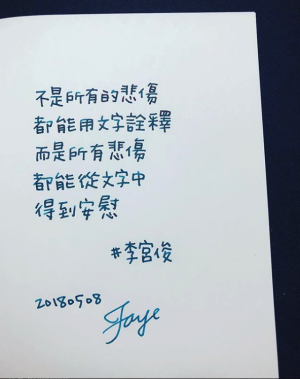 不是所有的悲傷
都能用文字詮釋
而是所有悲傷
都能從文字中
得到安慰
#李宮俊
20180508
Faye